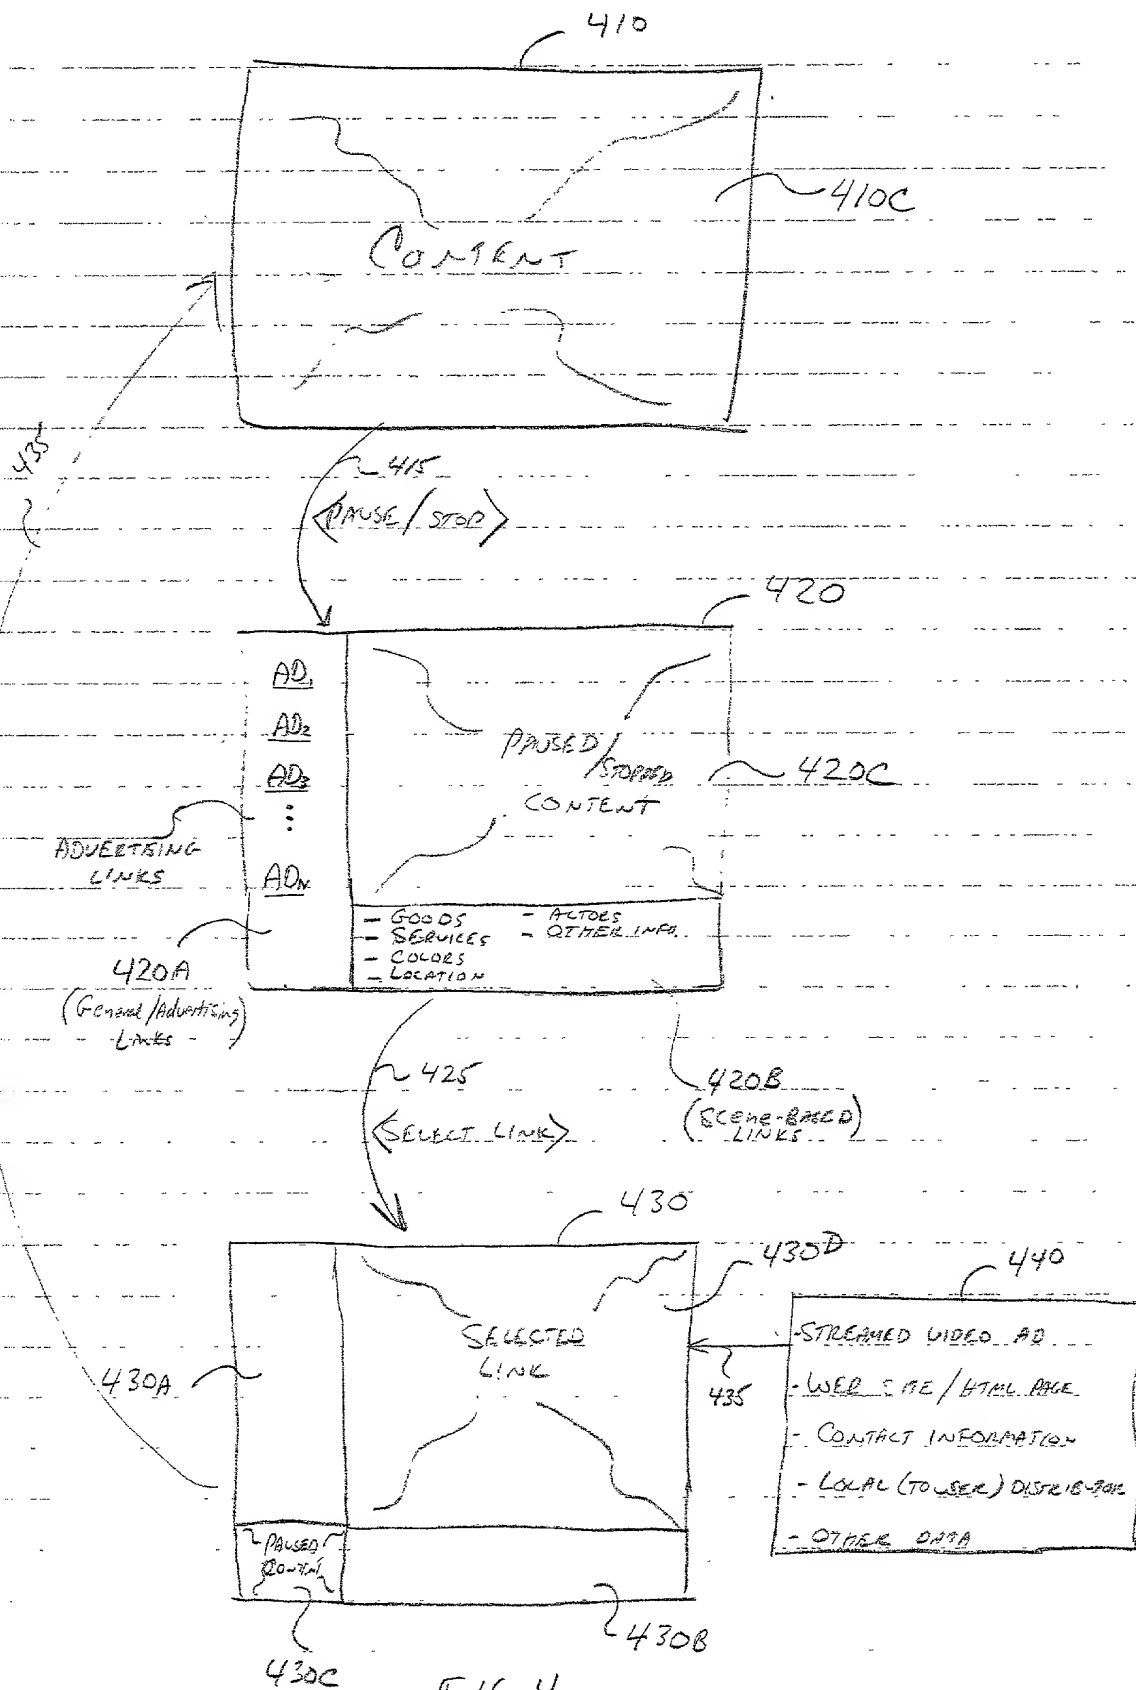 410
410C
CONTENT
435
415
<PAUSE/STOP>
420
AD1
AD2
AD3
ADN
PAUSED/
STOPPED
CONTENT
420C
ADVERTISING
LINKS
- GOODS
- SERVICES
- COLORS
- LOCATION
- ACTORS
- OTHER INFO.
420A
(General/Advertising
LINKS)
425
<SELECT LINK>
420B
(SCENE-BASED
LINKS)
430
430D
440
SELECTED
LINK
430A
435
- STREAMED VIDEO AD
- WEB SITE/HTML PAGE
- CONTACT INFORMATION
- LOCAL (TO USER) DISTRIBUTOR
- OTHER DATA
PAUSED
CONTENT
430B
430C
FIG. 4